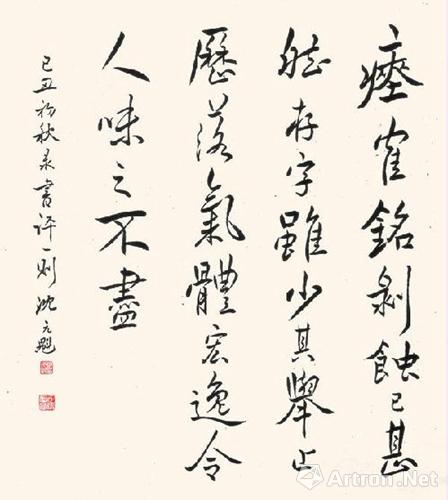 瘞隺銘剝蝕已甚
然存字雖少其舉止
歷落氣體宏逸令
人味之不盡
己丑初秋录書評一则沈元魁
Artron.Net